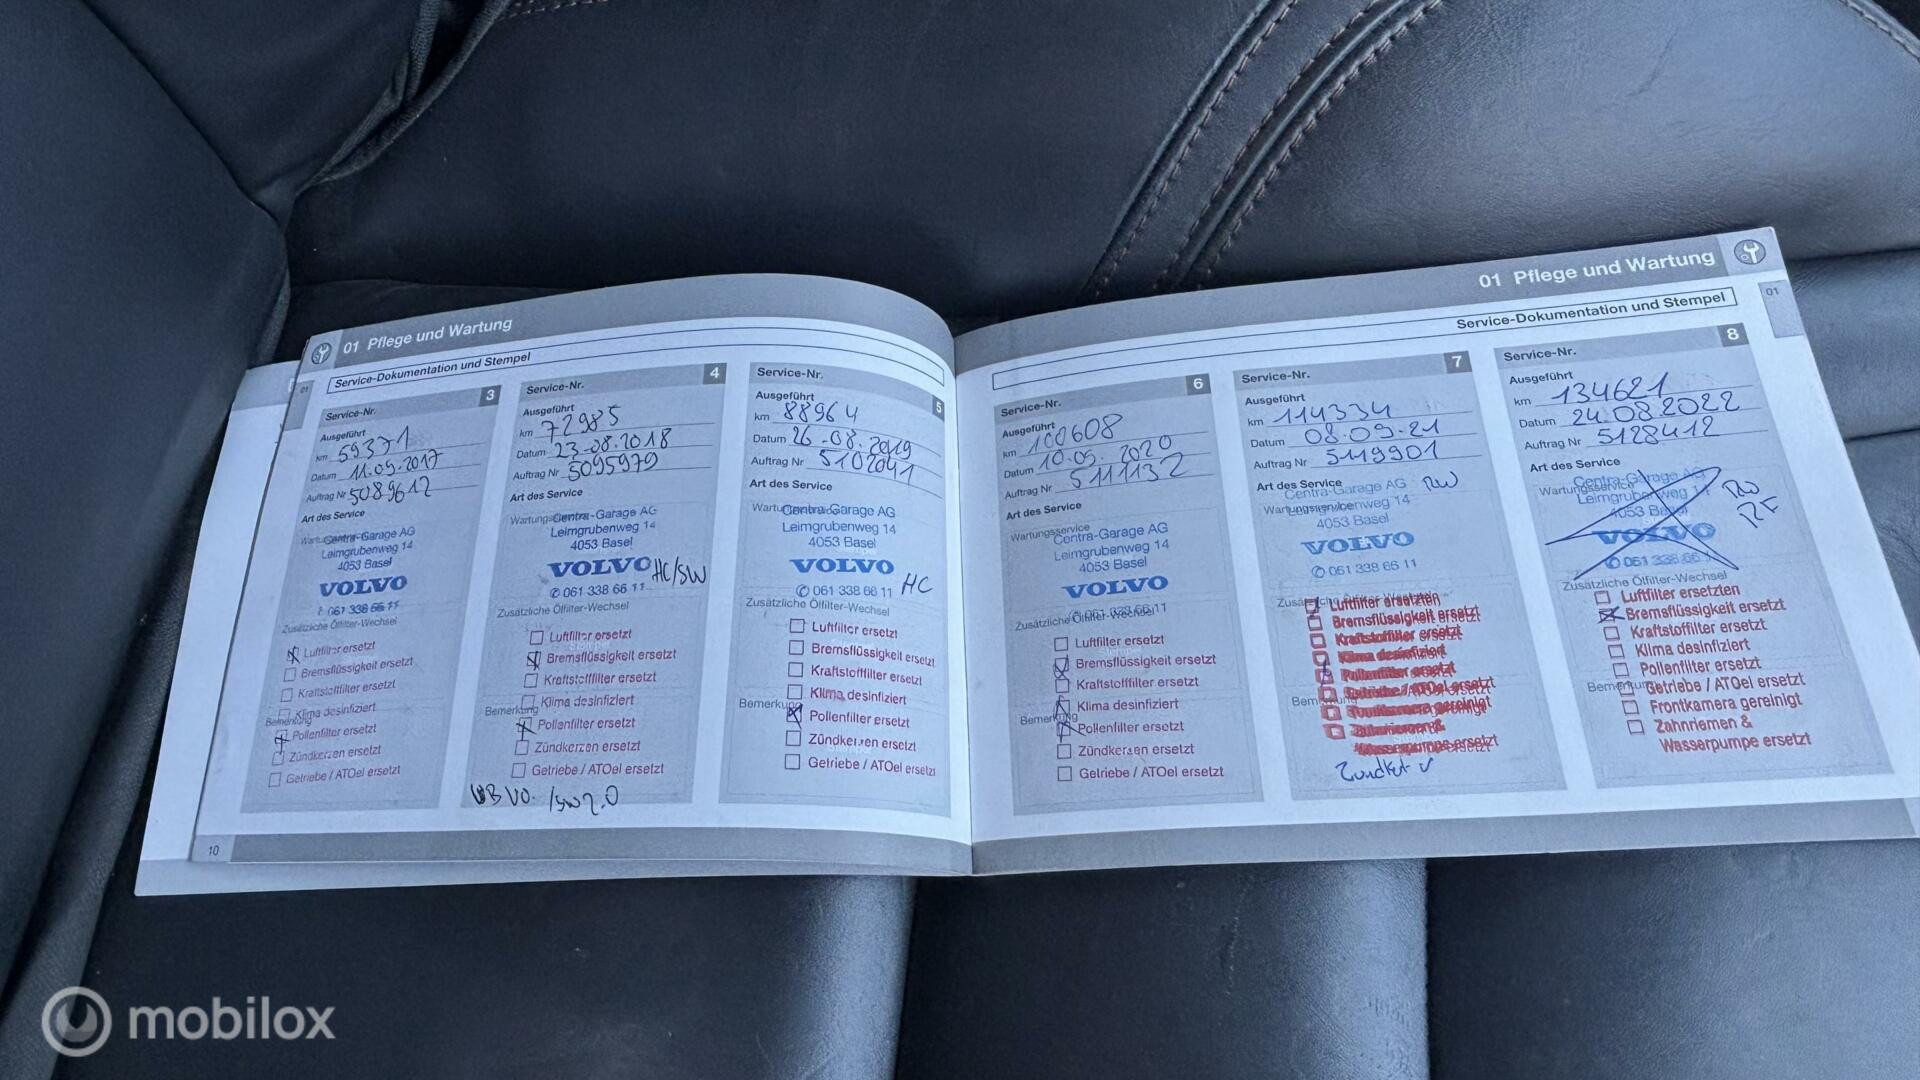 01 Pflege und Wartung
Service-Dokumentation und Stempel
Service-Nr. 3
Ausgeführt
km 59371
Datum 11.09.2017
Auftrag Nr 5089612
Art des Service
Centra-Garage AG
Leimgrubenweg 14
4053 Basel
VOLVO
✆ 061 338 66 11
Zusätzliche Ölfilter-Wechsel
Luftfilter ersetzt
Bremsflüssigkeit ersetzt
Kraftstoffilter ersetzt
Klima desinfiziert
Bemerkung
Pollenfilter ersetzt
Zündkerzen ersetzt
Getriebe / ATOel ersetzt
10
Service-Nr. 4
Ausgeführt
km 72985
Datum 23.08.2018
Auftrag Nr 5095979
Art des Service
Centra-Garage AG
Leimgrubenweg 14
4053 Basel
VOLVO HC/SW
✆ 061 338 66 11
Zusätzliche Ölfilter-Wechsel
Luftfilter ersetzt
Bremsflüssigkeit ersetzt
Kraftstofffilter ersetzt
Klima desinfiziert
Bemerkung
Pollenfilter ersetzt
Zündkerzen ersetzt
Getriebe / ATOel ersetzt
Service-Nr. 5
Ausgeführt
km 88964
Datum 26.08.2019
Auftrag Nr 5102041
Art des Service
Centra-Garage AG
Leimgrubenweg 14
4053 Basel
VOLVO
✆ 061 338 66 11 HC
Zusätzliche Ölfilter-Wechsel
Luftfilter ersetzt
Bremsflüssigkeit ersetzt
Kraftstofffilter ersetzt
Klima desinfiziert
Bemerkung
Pollenfilter ersetzt
Zündkerzen ersetzt
Getriebe / ATOel ersetzt
01 Pflege und Wartung
Service-Dokumentation und Stempel
01
Service-Nr. 6
Ausgeführt
km 100608
Datum 10.09.2020
Auftrag Nr 5111132
Art des Service
Wartungsservice
Centra-Garage AG
Leimgrubenweg 14
4053 Basel
VOLVO
✆ 061 338 66 11
Zusätzliche Ölfilter-Wechsel
Luftfilter ersetzt
Bremsflüssigkeit ersetzt
Kraftstofffilter ersetzt
Klima desinfiziert
Bemerkung
Pollenfilter ersetzt
Zündkerzen ersetzt
Getriebe / ATOel ersetzt
Service-Nr. 7
Ausgeführt
km 114334
Datum 08.09.21
Auftrag Nr 5119901
Art des Service
Centra-Garage AG RW
4053 Basel
VOLVO
✆ 061 338 66 11
Luftfilter ersetzten
Bremsflüssigkeit ersetzt
Kraftstoffilter ersetzt
Klima desinfiziert
Pollenfilter ersetzt
Service-Nr. 8
Ausgeführt
km 134621
Datum 24.08.2022
Auftrag Nr 5128412
Art des Service
Wartungsservice
Centra-Garage AG
Leimgrubenweg 14
4053 Basel
VOLVO
✆ 061 338 66 11
Zusätzliche Ölfilter-Wechsel
Luftfilter ersetzten
Bremsflüssigkeit ersetzt
Kraftstoffilter ersetzt
Klima desinfiziert
Pollenfilter ersetzt
Bemerkung
Getriebe / ATOel ersetzt
Frontkamera gereinigt
Zahnriemen &
Wasserpumpe ersetzt
mobilox